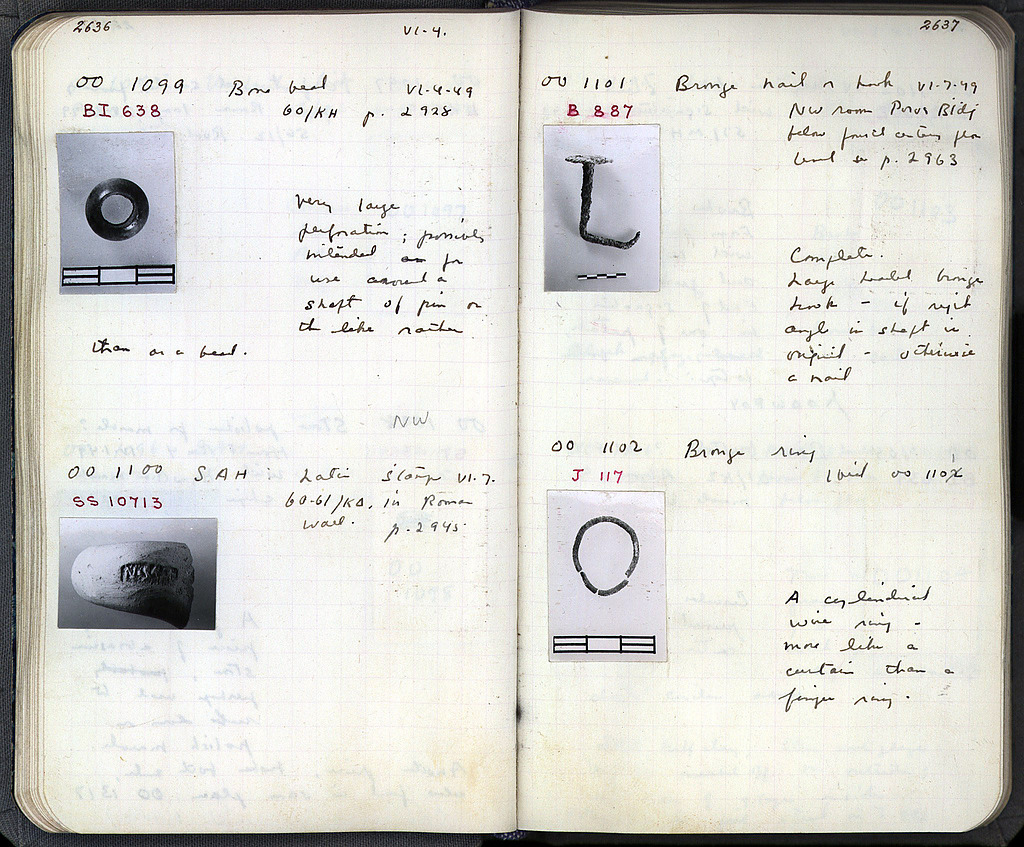 2636
VI-4.
OO 1099 Bone bead VI-4-49
BI 638 60/KH p. 2928
Very large
perforation; possibly
intended for
use around a
shaft of pin or
the like rather
than as a bead.
NW
OO 1100 SAH Latin Stamp VI-7.
SS 10713 60-61/KΔ. in Roman
wall. p. 2945
2637
OO 1101 Bronze nail or hook VI-7-49
B 887 NW room Poros Bldg
below fourth century floor
level p. 2963
Complete.
Large headed bronze
hook - if right
angle in shaft is
original - otherwise
a nail
OO 1102 Bronze ring
J 117 Ibid OO 1101
A cylindrical
wire ring -
more like a
curtain than a
finger ring.